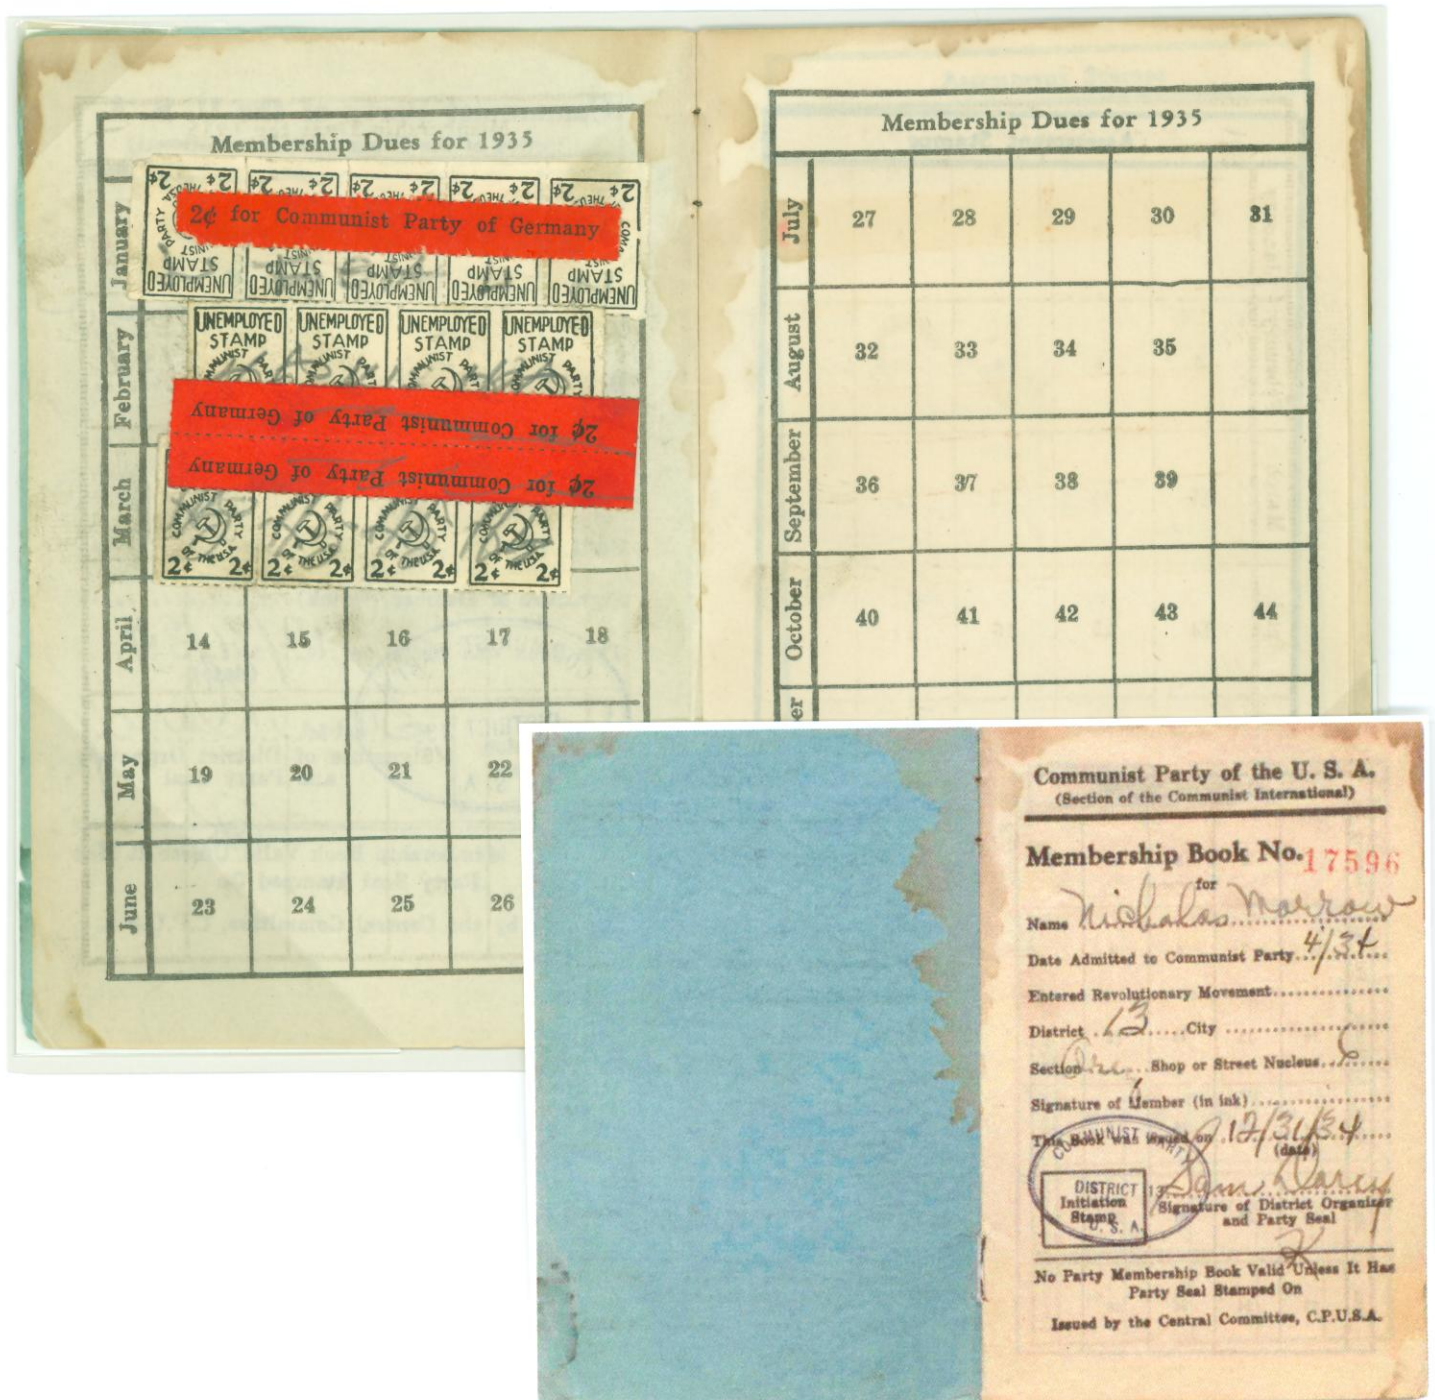 Membership Dues for 1935
January
2¢ 2¢ 2¢ 2¢ 2¢ 2¢ 2¢ 2¢ 2¢
2¢ for Communist Party of Germany
STAMP STAMP STAMP STAMP STAMP
UNEMPLOYED UNEMPLOYED UNEMPLOYED UNEMPLOYED UNEMPLOYED
February
UNEMPLOYED UNEMPLOYED UNEMPLOYED UNEMPLOYED
STAMP STAMP STAMP STAMP
2¢ for Communist Party of Germany
2¢ for Communist Party of Germany
March
COMMUNIST PARTY OF THE U.S.A. COMMUNIST PARTY OF THE U.S.A. COMMUNIST PARTY OF THE U.S.A. COMMUNIST PARTY OF THE U.S.A.
2¢ 2¢ 2¢ 2¢ 2¢ 2¢ 2¢ 2¢
April 14 15 16 17 18
May 19 20 21 22
June 23 24 25 26
Membership Dues for 1935
July 27 28 29 30 31
August 32 33 34 35
September 36 37 38 39
October 40 41 42 43 44
er
Communist Party of the U. S. A.
(Section of the Communist International)
Membership Book No. 17596
for
Name Nicholas Morrow
Date Admitted to Communist Party 4/34
Entered Revolutionary Movement
District 13 City
Section One Shop or Street Nucleus 6
Signature of Member (in ink)
This Book was issued on 12/31/34
(date)
COMMUNIST PARTY
DISTRICT 13
U. S. A.
Initiation
Stamp
Sam Darcy
Signature of District Organizer
and Party Seal
No Party Membership Book Valid Unless It Has
Party Seal Stamped On
Issued by the Central Committee, C.P.U.S.A.